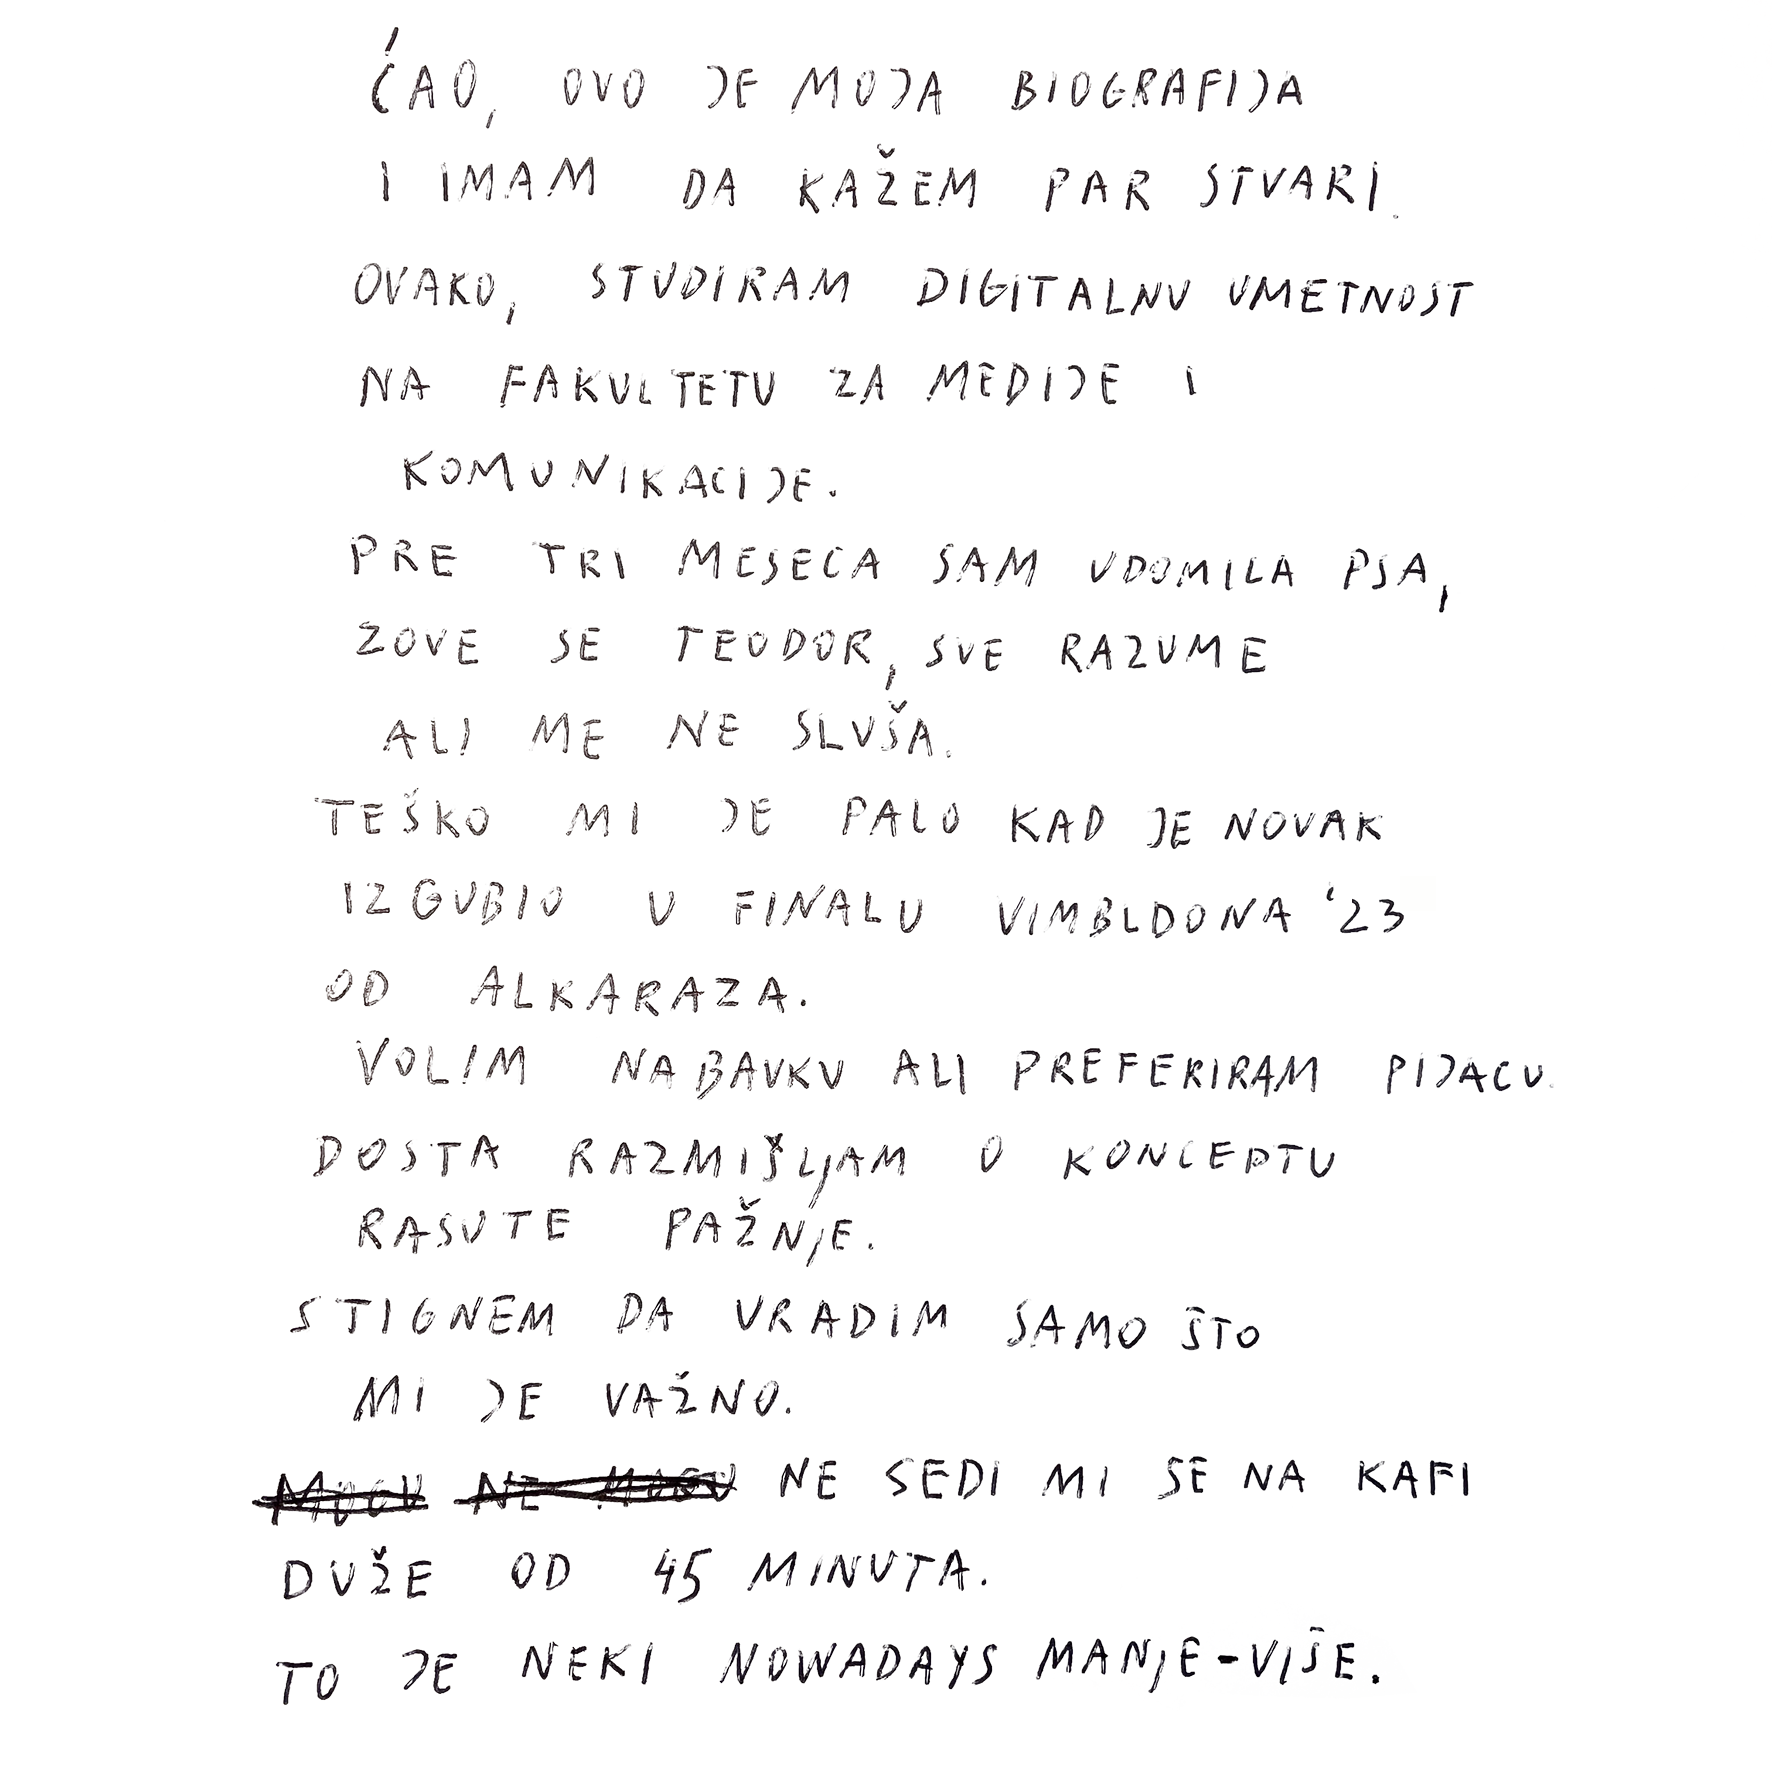 ĆAO, OVO JE MOJA BIOGRAFIJA
I IMAM DA KAŽEM PAR STVARI.
OVAKO, STUDIRAM DIGITALNU UMETNOST
NA FAKULTETU ZA MEDIJE I
KOMUNIKACIJE.
PRE TRI MESECA SAM UDOMILA PSA,
ZOVE SE TEODOR, SVE RAZUME
ALI ME NE SLUŠA.
TEŠKO MI JE PALO KAD JE NOVAK
IZGUBIO U FINALU VIMBLDONA '23
OD ALKARAZA.
VOLIM NABAVKU ALI PREFERIRAM PIJACU.
DOSTA RAZMIŠLJAM O KONCEPTU
RASUTE PAŽNJE.
STIGNEM DA URADIM SAMO ŠTO
MI JE VAŽNO.
MOGU NE MOGU NE SEDI MI SE NA KAFI
DUŽE OD 45 MINUTA.
TO JE NEKI NOWADAYS MANJE-VIŠE.